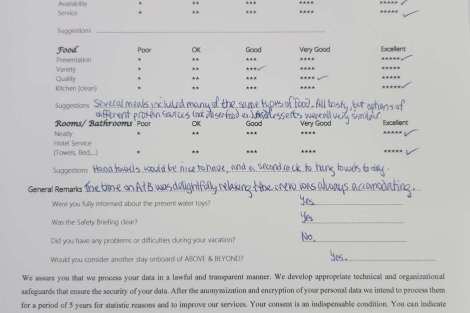 Availability * ** *** **** *****✓
Service * ** *** **** *****✓
Suggestions
Food Poor OK Good Very Good Excellent
Presentation * ** *** **** *****✓
Variety * ** ***✓ **** *****
Quality * ** *** ****✓ *****
Kitchen (clean) * ** *** **** *****✓
Suggestions Several meals included many of the same types of food. All tasty, but options of
different protein sources desserts were all very similar
Rooms/ Bathrooms Poor OK Good Very Good Excellent
Neatly * ** *** **** *****✓
Hotel Service
(Towels, Bed,...) * ** *** **** *****✓
Suggestions Hand towels would be nice to have, and a second rack to hang towels to dry.
General Remarks The time on A+B was delightfully relaxing & the crew was always accomodating.
Were you fully informed about the present water toys? Yes
Was the Safety Briefing clear? Yes
Did you have any problems or difficulties during your vacation? No.
Would you consider another stay onboard of ABOVE & BEYOND? Yes.
We assure you that we process your data in a lawful and transparent manner. We develop appropriate technical and organizational
safeguards that ensure the security of your data. After the anonymization and encryption of your personal data we intend to process them
for a period of 5 years for statistic reasons and to improve our services. Your consent is an indispensable condition. You can indicate